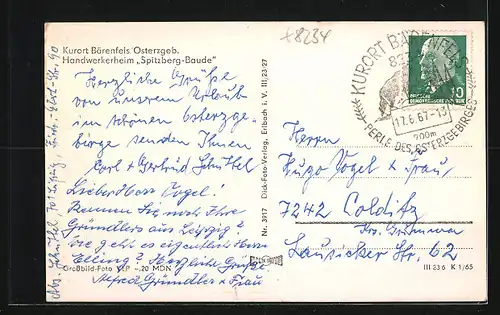 x8234
Kurort Bärenfels Osterzgeb.
Handwerkerheim „Spitzberg-Baude"
Herzliche Grüße
von unserem Urlaub
im schönen Osterzge-
birge senden Ihnen
Carl + Gertrud Schüttel
Lieber Herr Vogel!
Kennen Sie noch Ihre
Gründlers aus Leipzig?
Wie geht es eigentlich Herrn
Elling? Herzliche Grüße
Alfred Gründler + Frau
Großbild-Foto VLP -.20 MDN
Abs. Schüttel, 701 Leipzig,
Nr. 3917 Dick-Foto-Verlag, Erlbach i. V. III/23/27
KURORT BÄRENFELS
17.6.67-13
700m
PERLE DES OSTERZGEBIRGES
DEUTSCHE
DEMOKRATISCHE REPUBLIK
10
Herrn
Hugo Vogel + Frau,
7242 Colditz
Krs. Grimma
Lausicker Str. 62
III 23 6 K 1/65